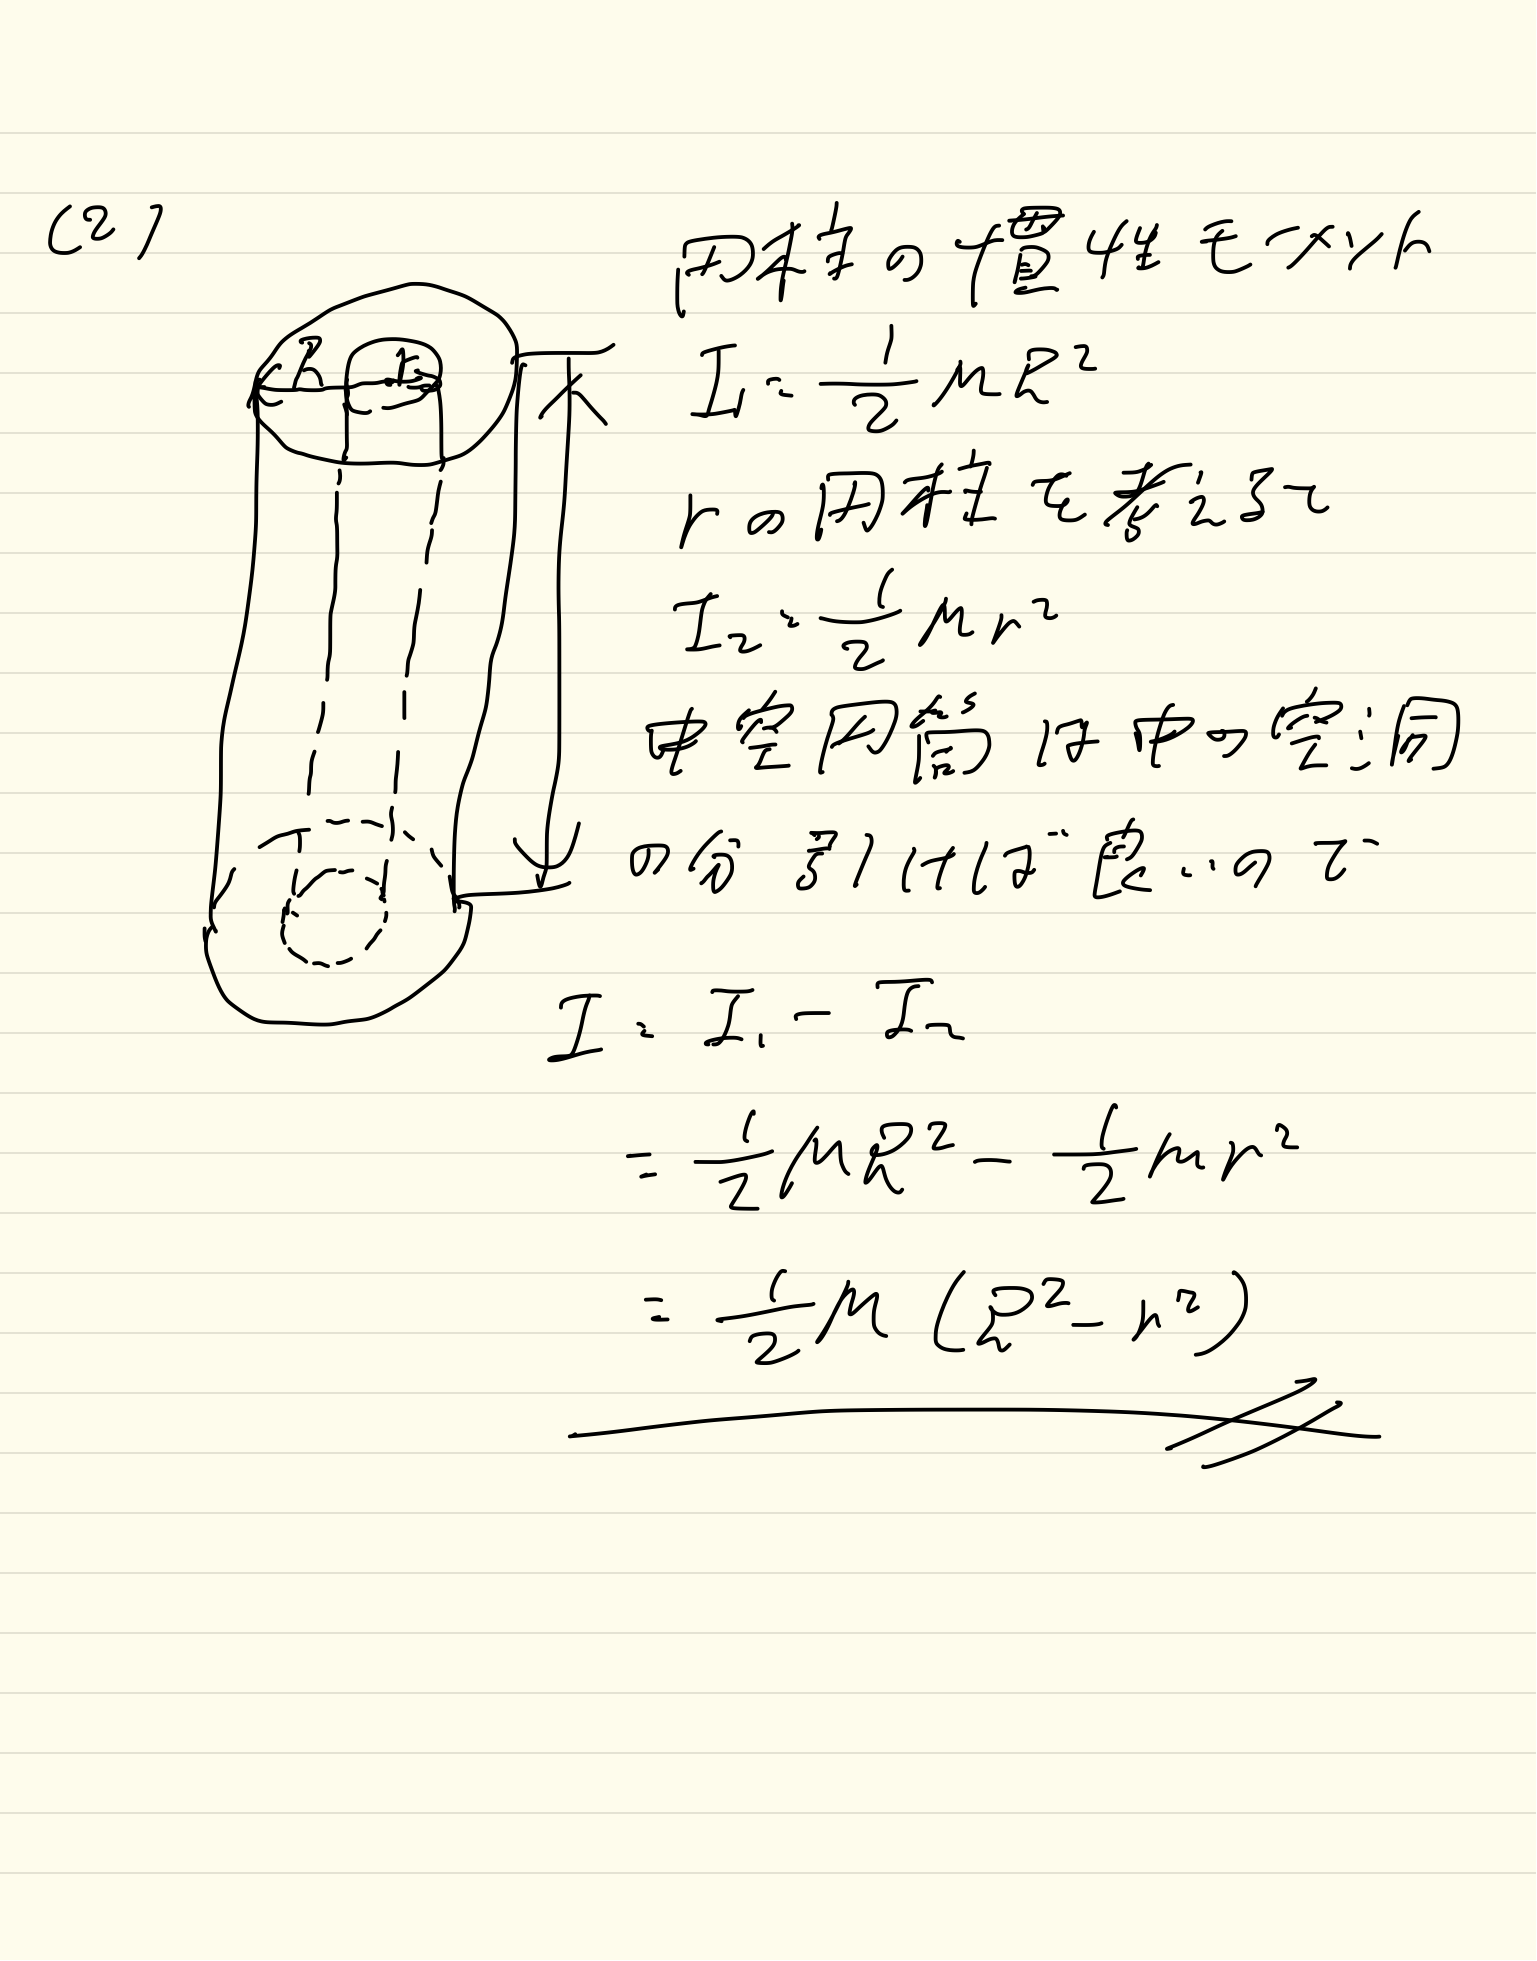 (2)
円柱の慣性モーメント
I₁ = 1/2 MR²
R r
rの円柱を考えて
I₂ = 1/2 Mr²
中空円筒は中の空洞
の分引けば良いので
I = I₁ - I₂
= 1/2 MR² - 1/2 Mr²
= 1/2 M (R² - r²)